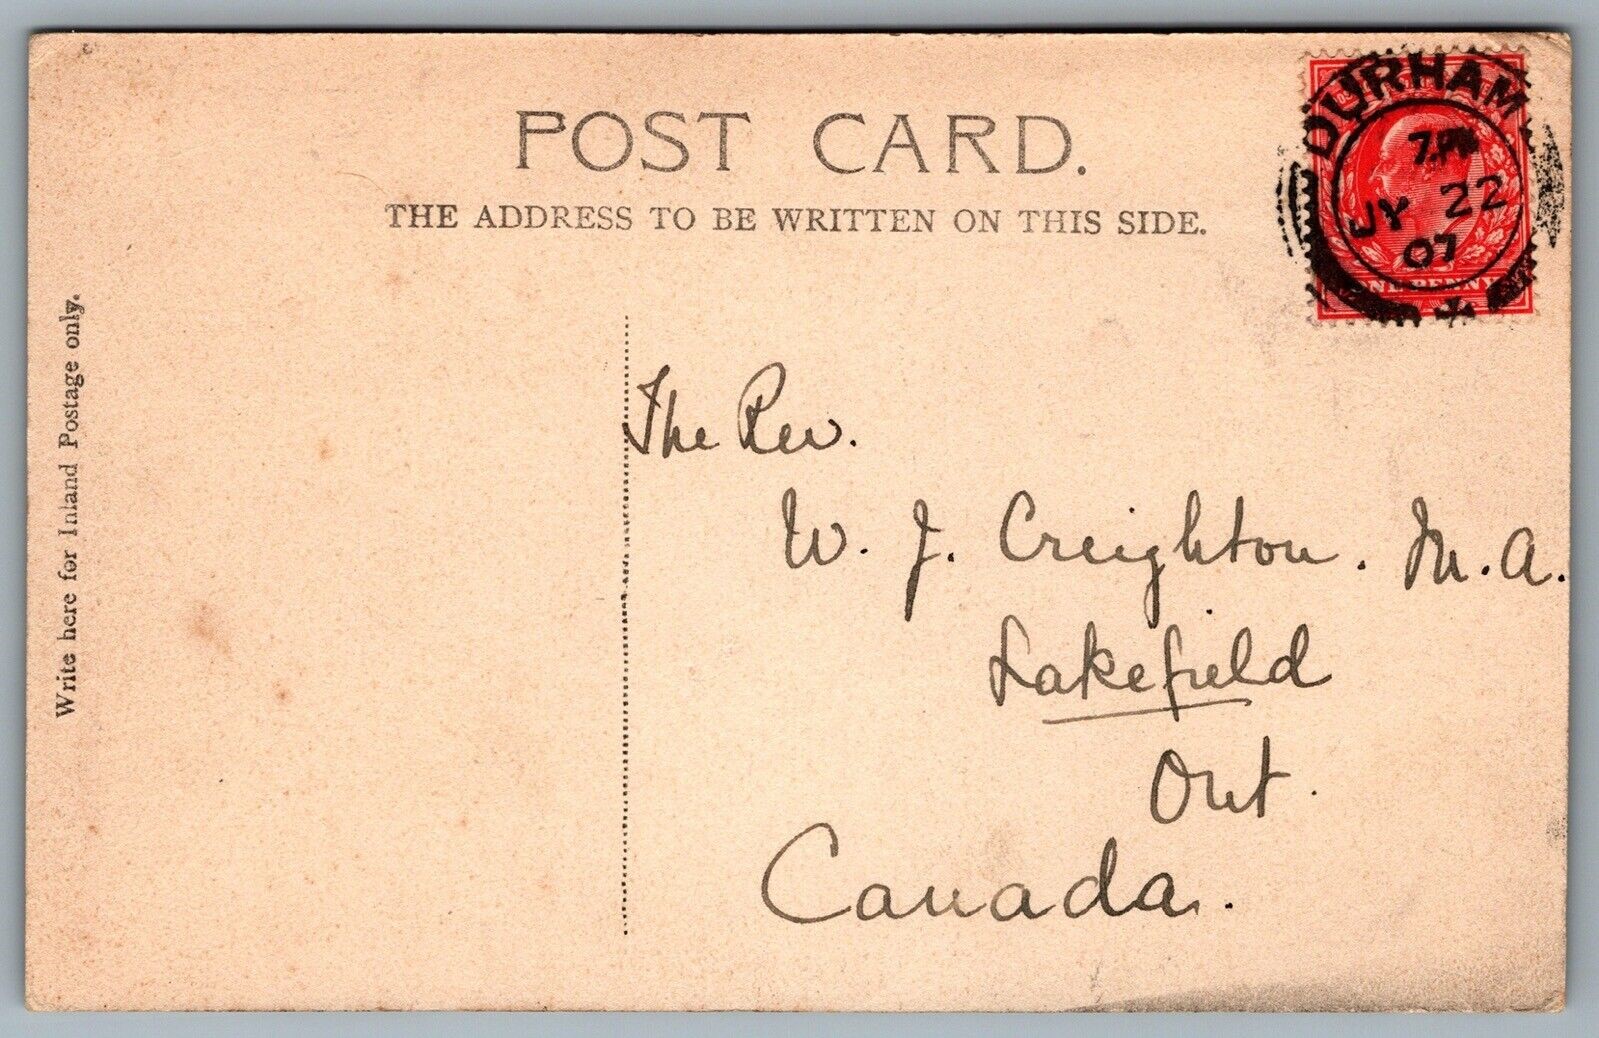 POST CARD.
THE ADDRESS TO BE WRITTEN ON THIS SIDE.
DURHAM
7.PM
JY 22
07
ONE PENNY
Write here for Inland Postage only.
The Rev.
W. J. Creighton. M.A.
Lakefield
Ont.
Canada.